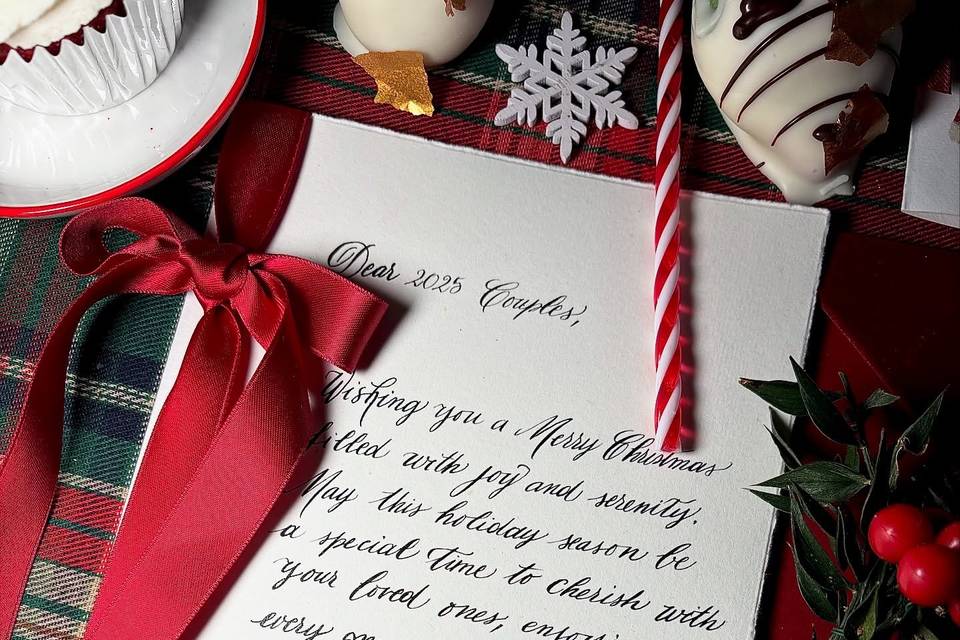 Dear 2025 Couples,
Wishing you a Merry Christmas
filled with joy and serenity.
May this holiday season be
a special time to cherish with
your loved ones,
every